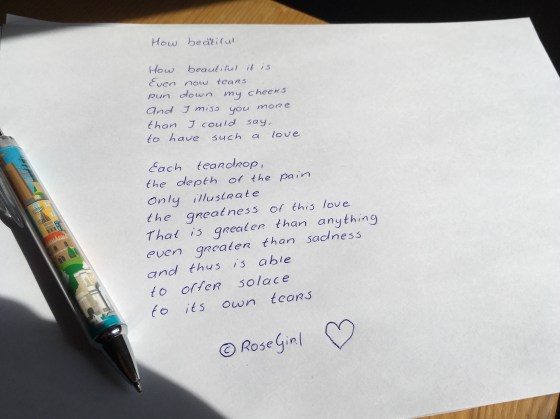 How beautiful

How beautiful it is
Even now tears
run down my cheeks
And I miss you more
than I could say,
to have such a love

Each teardrop,
the depth of the pain
Only illustrate
the greatness of this love
That is greater than anything
even greater than sadness
and thus is able
to offer solace
to its own tears

© RoseGirl ♡